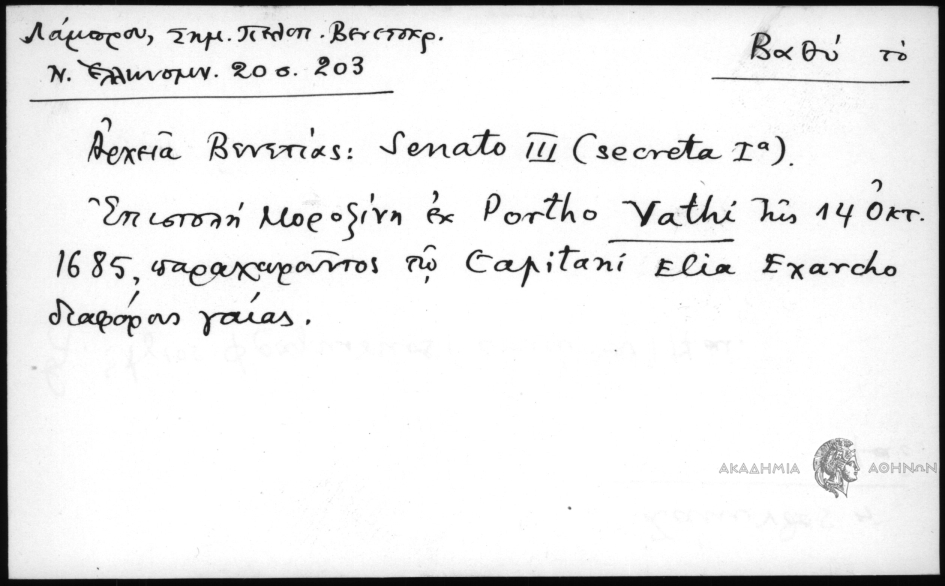 Λάμπρου, Σημ. Πελοπ. Βενετοκρ.
Ν. Ἑλληνομν. 20 σ. 203
Βαθύ τὸ
Ἀρχεῖα Βενετίας: Senato III (secreta Iª).
Ἐπιστολὴ Μοροζίνη ἐκ Portho Vathi τῆς 14 Ὀκτ.
1685, παραχωροῦντος τῷ Capitani Elia Exarcho
διαφόρους γαίας.
ΑΚΑΔΗΜΙΑ ΑΘΗΝΩΝ